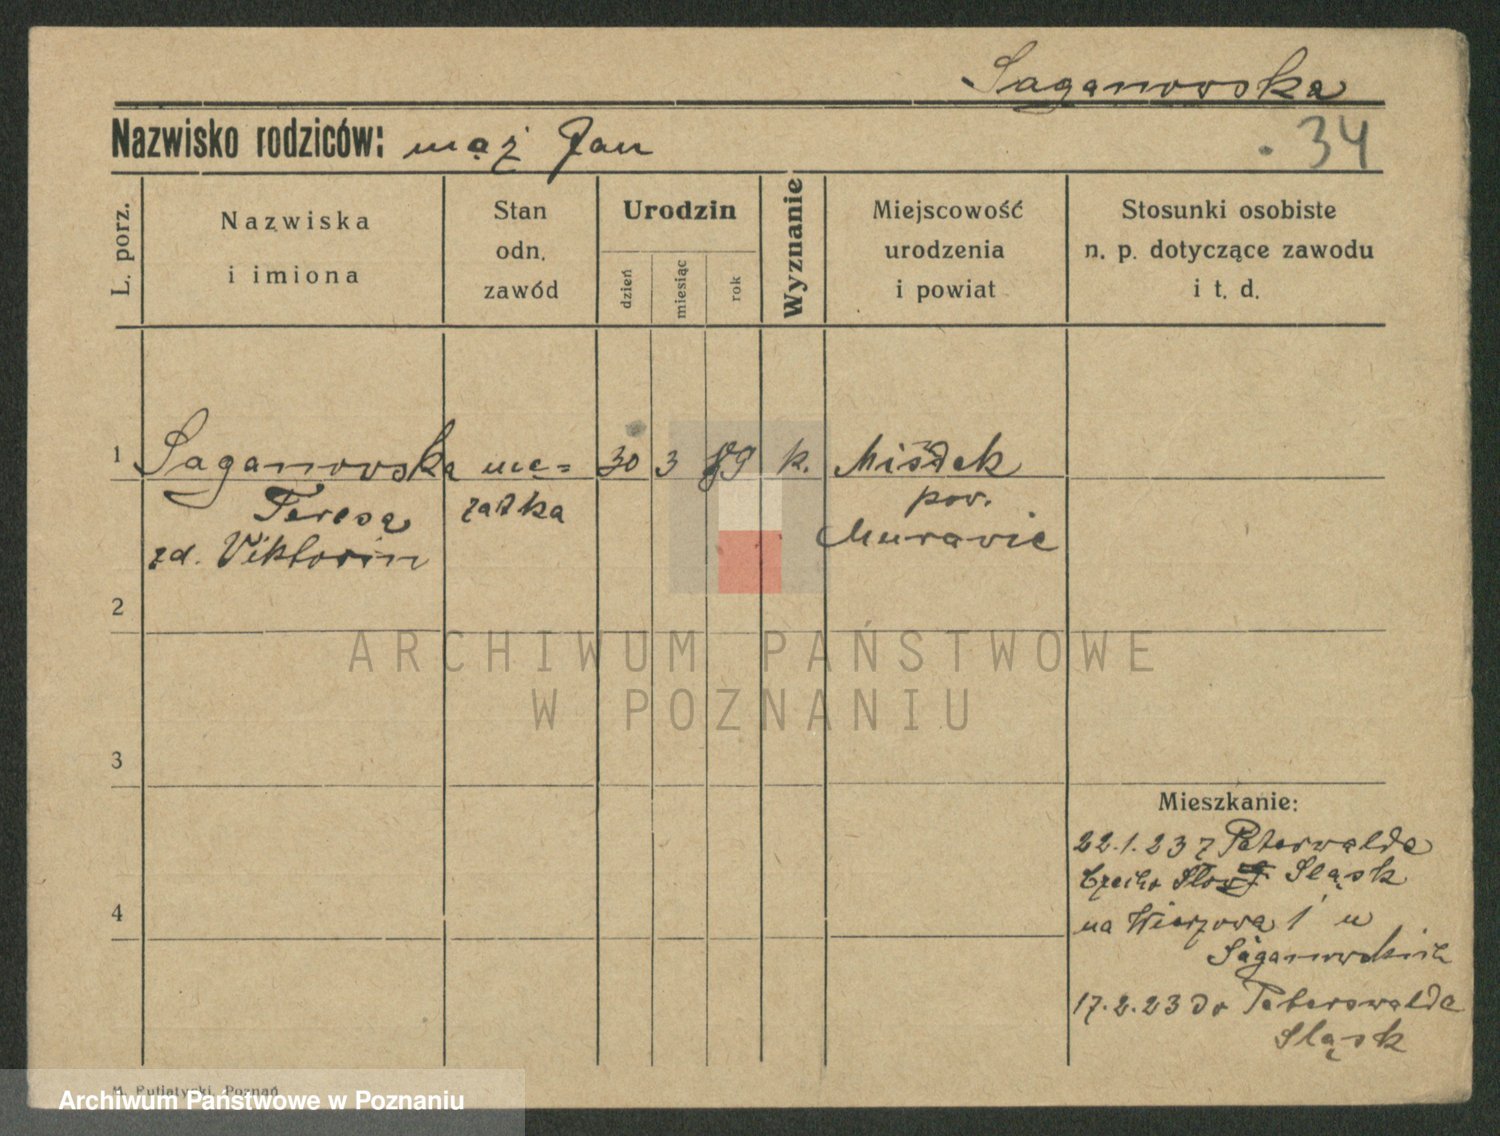 Saganowska
Nazwisko rodziców: mąż Jan
. 34
L. porz.
Nazwiska
i imiona
Stan
odn.
zawód
Urodzin
dzień
miesiąc
rok
Wyznanie
Miejscowość
urodzenia
i powiat
Stosunki osobiste
n. p. dotyczące zawodu
i t. d.
1 Saganowska mę= 30 3 89 k. Mistek
Teresa zatka pow.
zd. Viktorin Muravic
2
3
4
Mieszkanie:
22.1.23 z Peterwalde
Czecho Słow Śląsk
na Wierzową 1 u
Saganowskich
17.2.23 do Peterswalde
Śląsk
M. Putiatycki, Poznań
ARCHIWUM PAŃSTWOWE
W POZNANIU
Archiwum Państwowe w Poznaniu